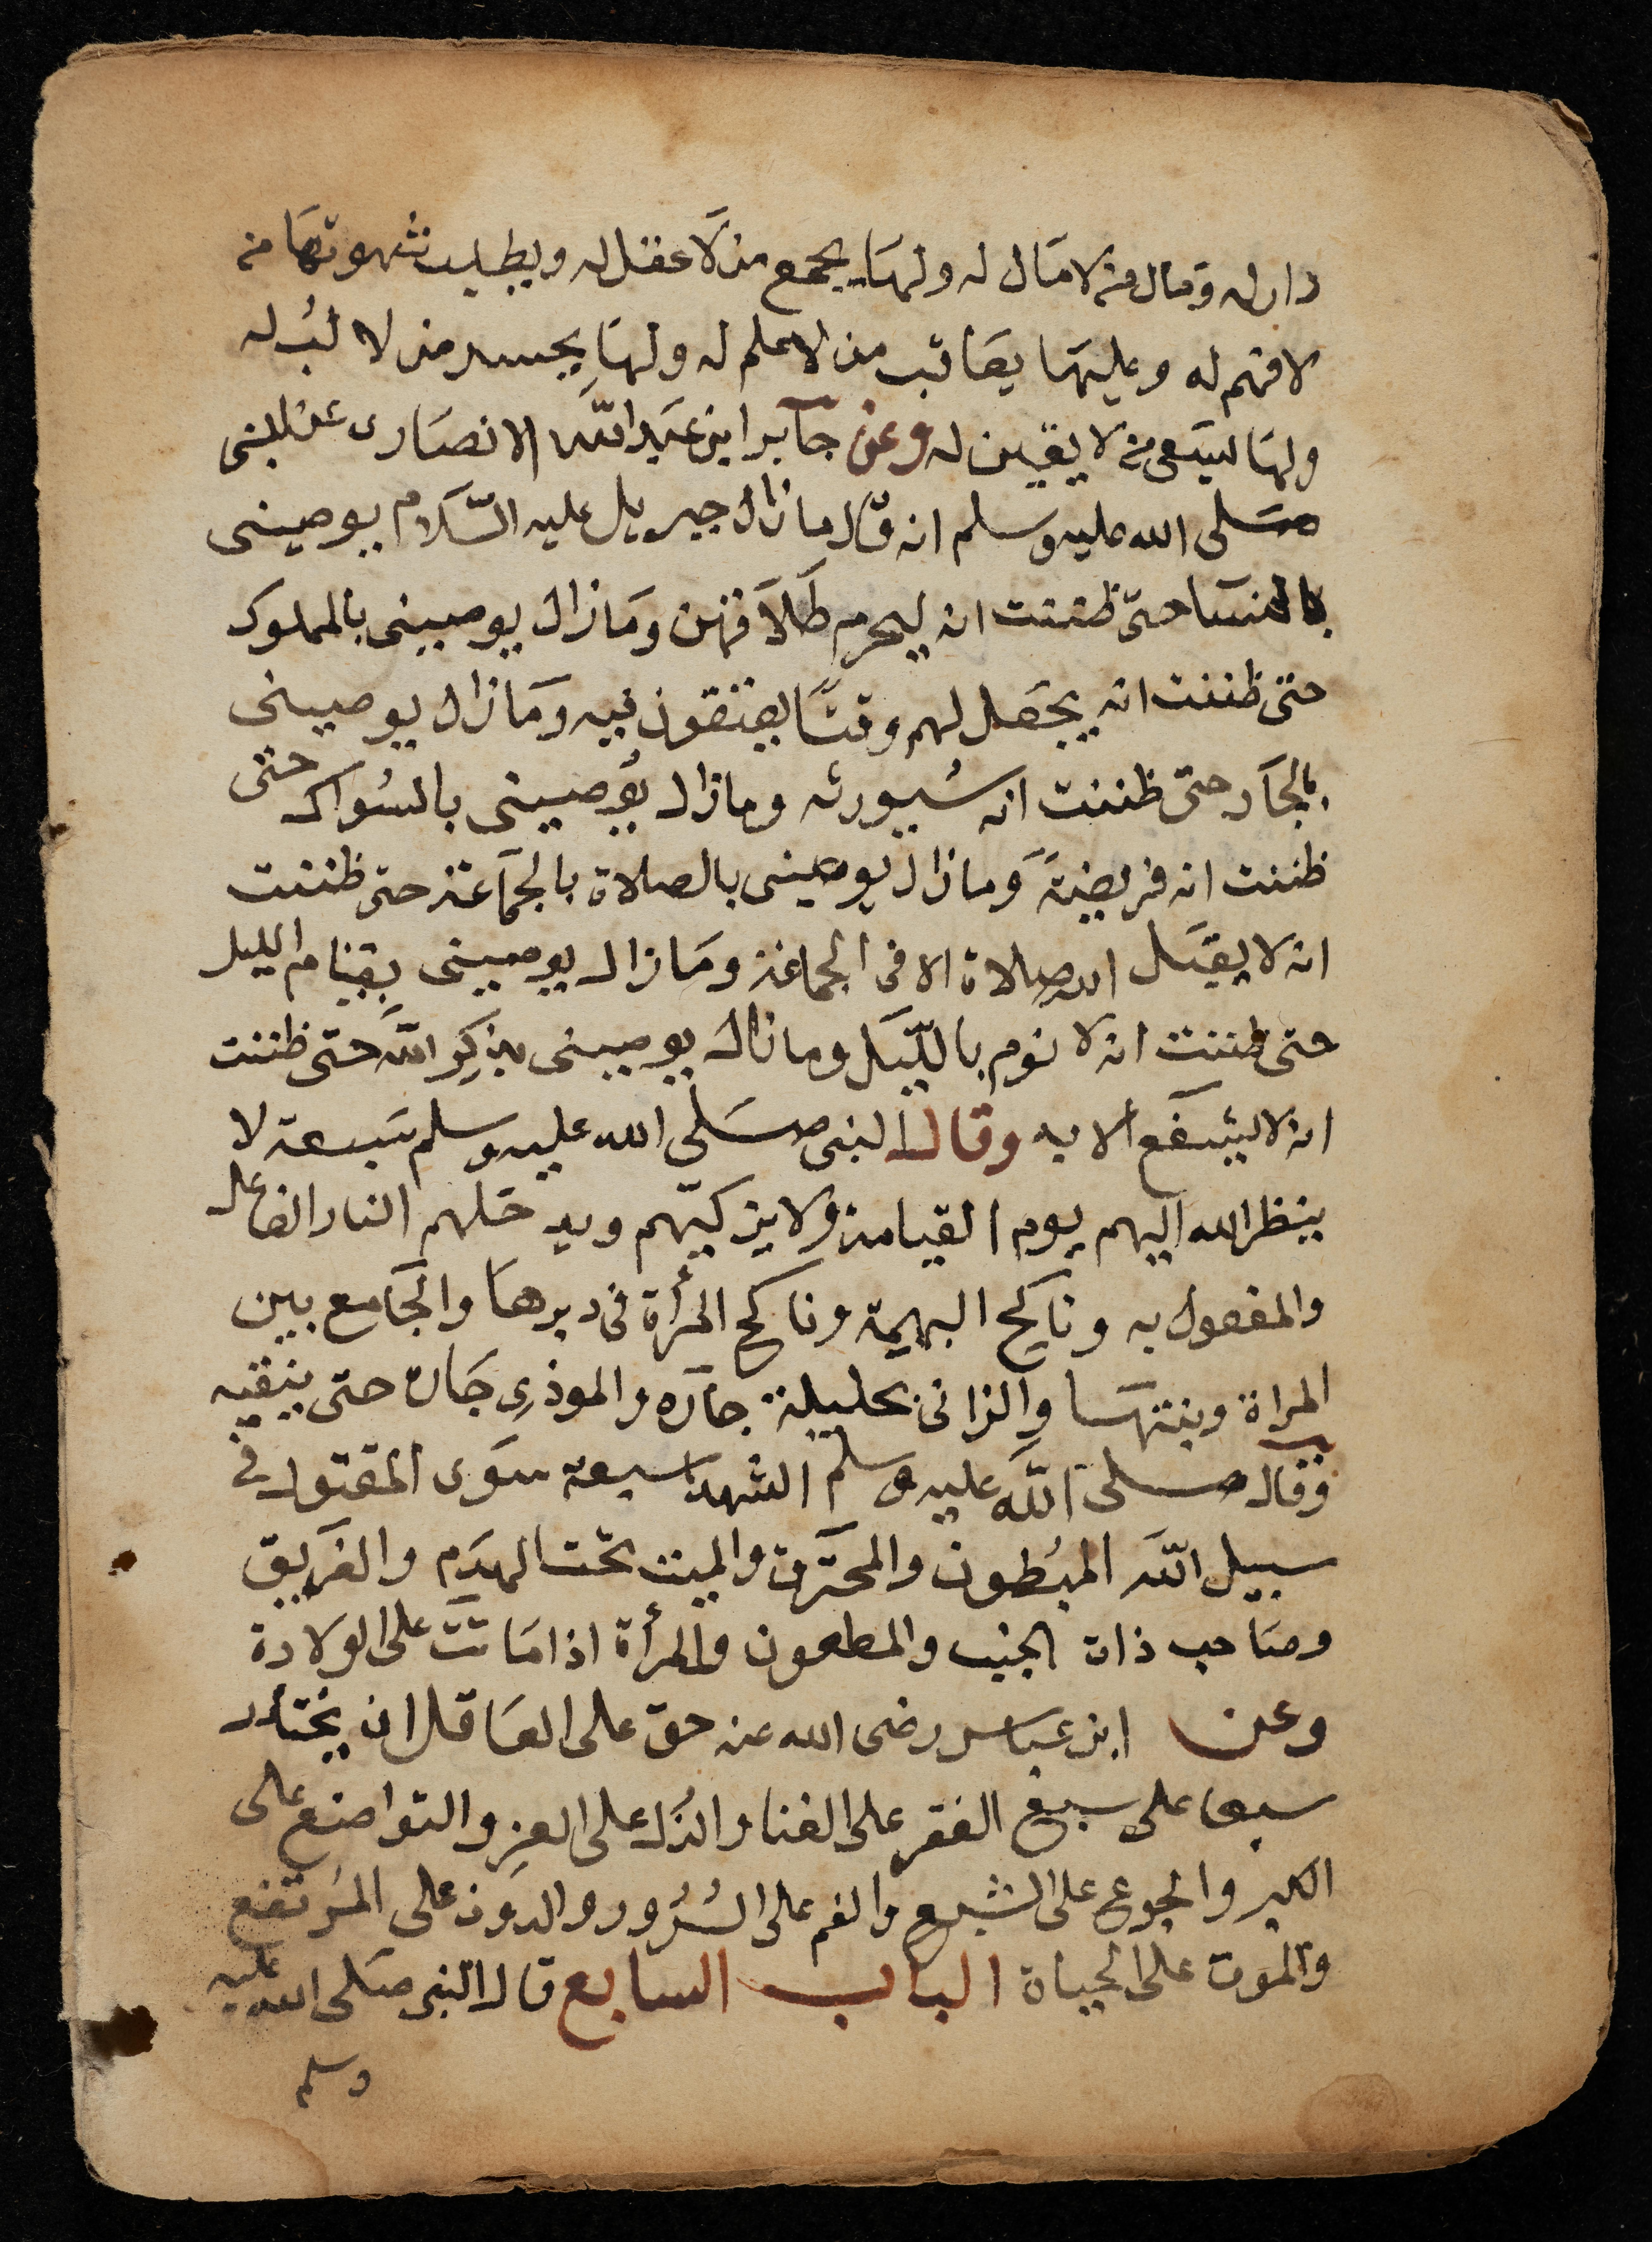 دار له ومال من لا مال له ولها يجمع من لا عقل له ويطلب شهوتها من
لا فهم له وعليها يعاقب من لا علم له ولها يحسد من لا لب له
ولها يسعى من لا يقين له وعن جابر ابن عبد الله الانصارى عن النبى
صلى الله عليه وسلم انه قال ما زال جبريل عليه السّلام يوصينى
بالنسا حتى ظننت انه ليحرم طلاقهن وما زال يوصينى بالمملوك
حتى ظننت انه يجعل لهم وقتًا يعتقون فيه وما زال يوصينى
بالجار حتى ظننت انه سيورثه وما زال يوصينى بالسواك حتى
ظننت انه فريضة وما زال يوصينى بالصلاة بالجماعة حتى ظننت
انه لا يقبل الله صلاة الا فى الجماعة وما زال يوصينى بقيام الليل
حتى ظننت انه لا نوم بالليل وما زال يوصينى بذكر الله حتى ظننت
انه لا يشفع الا به وقال النبى صلى الله عليه وسلم سبعة لا
ينظر الله اليهم يوم القيامة ولا يزكيهم ويدخلهم النار الفاعل
والمفعول به وناكح البهيمة وناكح المرأة فى دبرها والجامع بين
المراة وبنتها والزانى بحليلة جاره والموذى جاره حتى
وقال صلى الله عليه وسلم الشهدا سبعة سوى المقتول فى
سبيل الله المبطون والمحترق والميت تحت الهدم والغريق
وصاحب ذات الجنب والمطعون والمرأة اذا ماتت على الولادة
وعن ابن عباس رضى الله عنه حق على العاقل ان يختار
سبعا على سبع الفقر على الغنا والذل على العز والتواضع على
الكبر والجوع على الشبع والغم على السرور والدون على المرتفع
والموت على الحياة الباب السابع قال النبى صلى الله عليه
وسلم